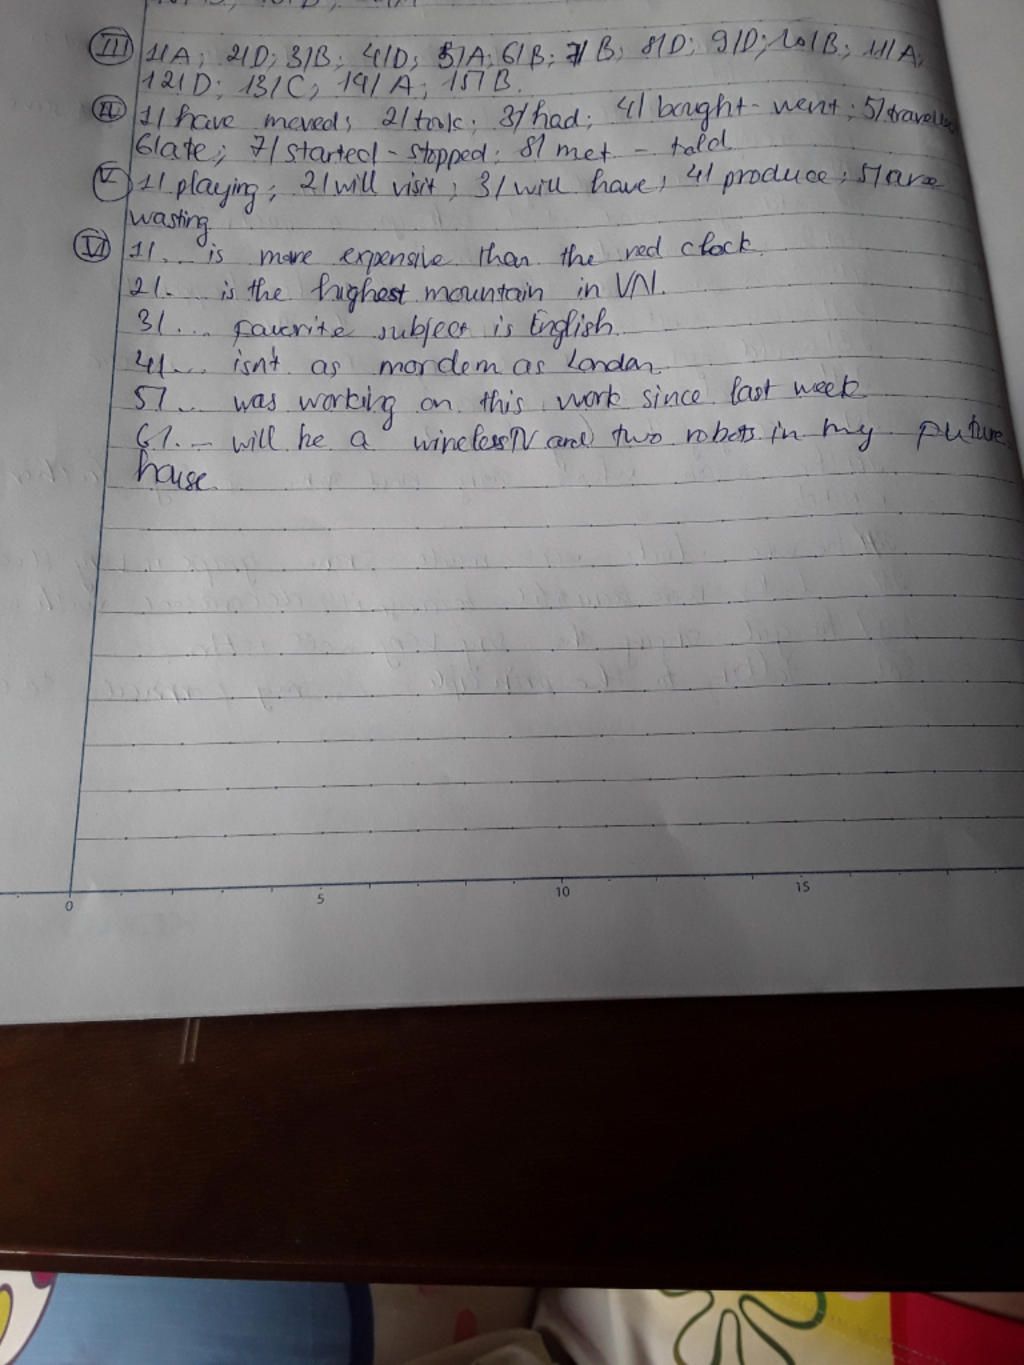 III 1/A; 2/D; 3/B; 4/D; 5/A; 6/B; 7/B; 8/D; 9/D; 10/B; 11/A;
12/D; 13/C; 14/A; 15/B.
IV 1/ have moved; 2/ took; 3/ had; 4/ bought - went; 5/
6/ate; 7/ started - stopped; 8/ met - told
V 1/ playing; 2/ will visit; 3/ will have; 4/ produce; 5/ are
wasting
VI 1/... is more expensive than the red clock.
2/... is the highest mountain in VN.
3/... favorite subject is English.
4/... isn't as mordem as London.
5/... was working on this work since last week
6/... will be a wirelessTV and two robots in my puture
house.
0 5 10 15